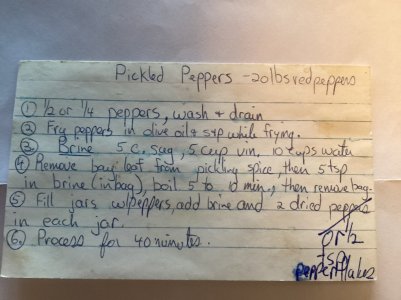 Pickled Peppers - 20lbs red peppers
① 1/2 or 1/4 peppers, wash + drain
② Fry peppers in olive oil + s+p while frying.
③ Brine 5 c. sug, 5 cup vin, 10 cups water
④ Remove bay leaf from pickling spice, then 5 tsp
in brine (in bag), boil 5 to 10 min., then remove bag.
⑤ Fill jars w/peppers, add brine and 2 dried peppers
in each jar.
or 1/2
⑥ Process for 40 minutes.
tsp
pepper flakes